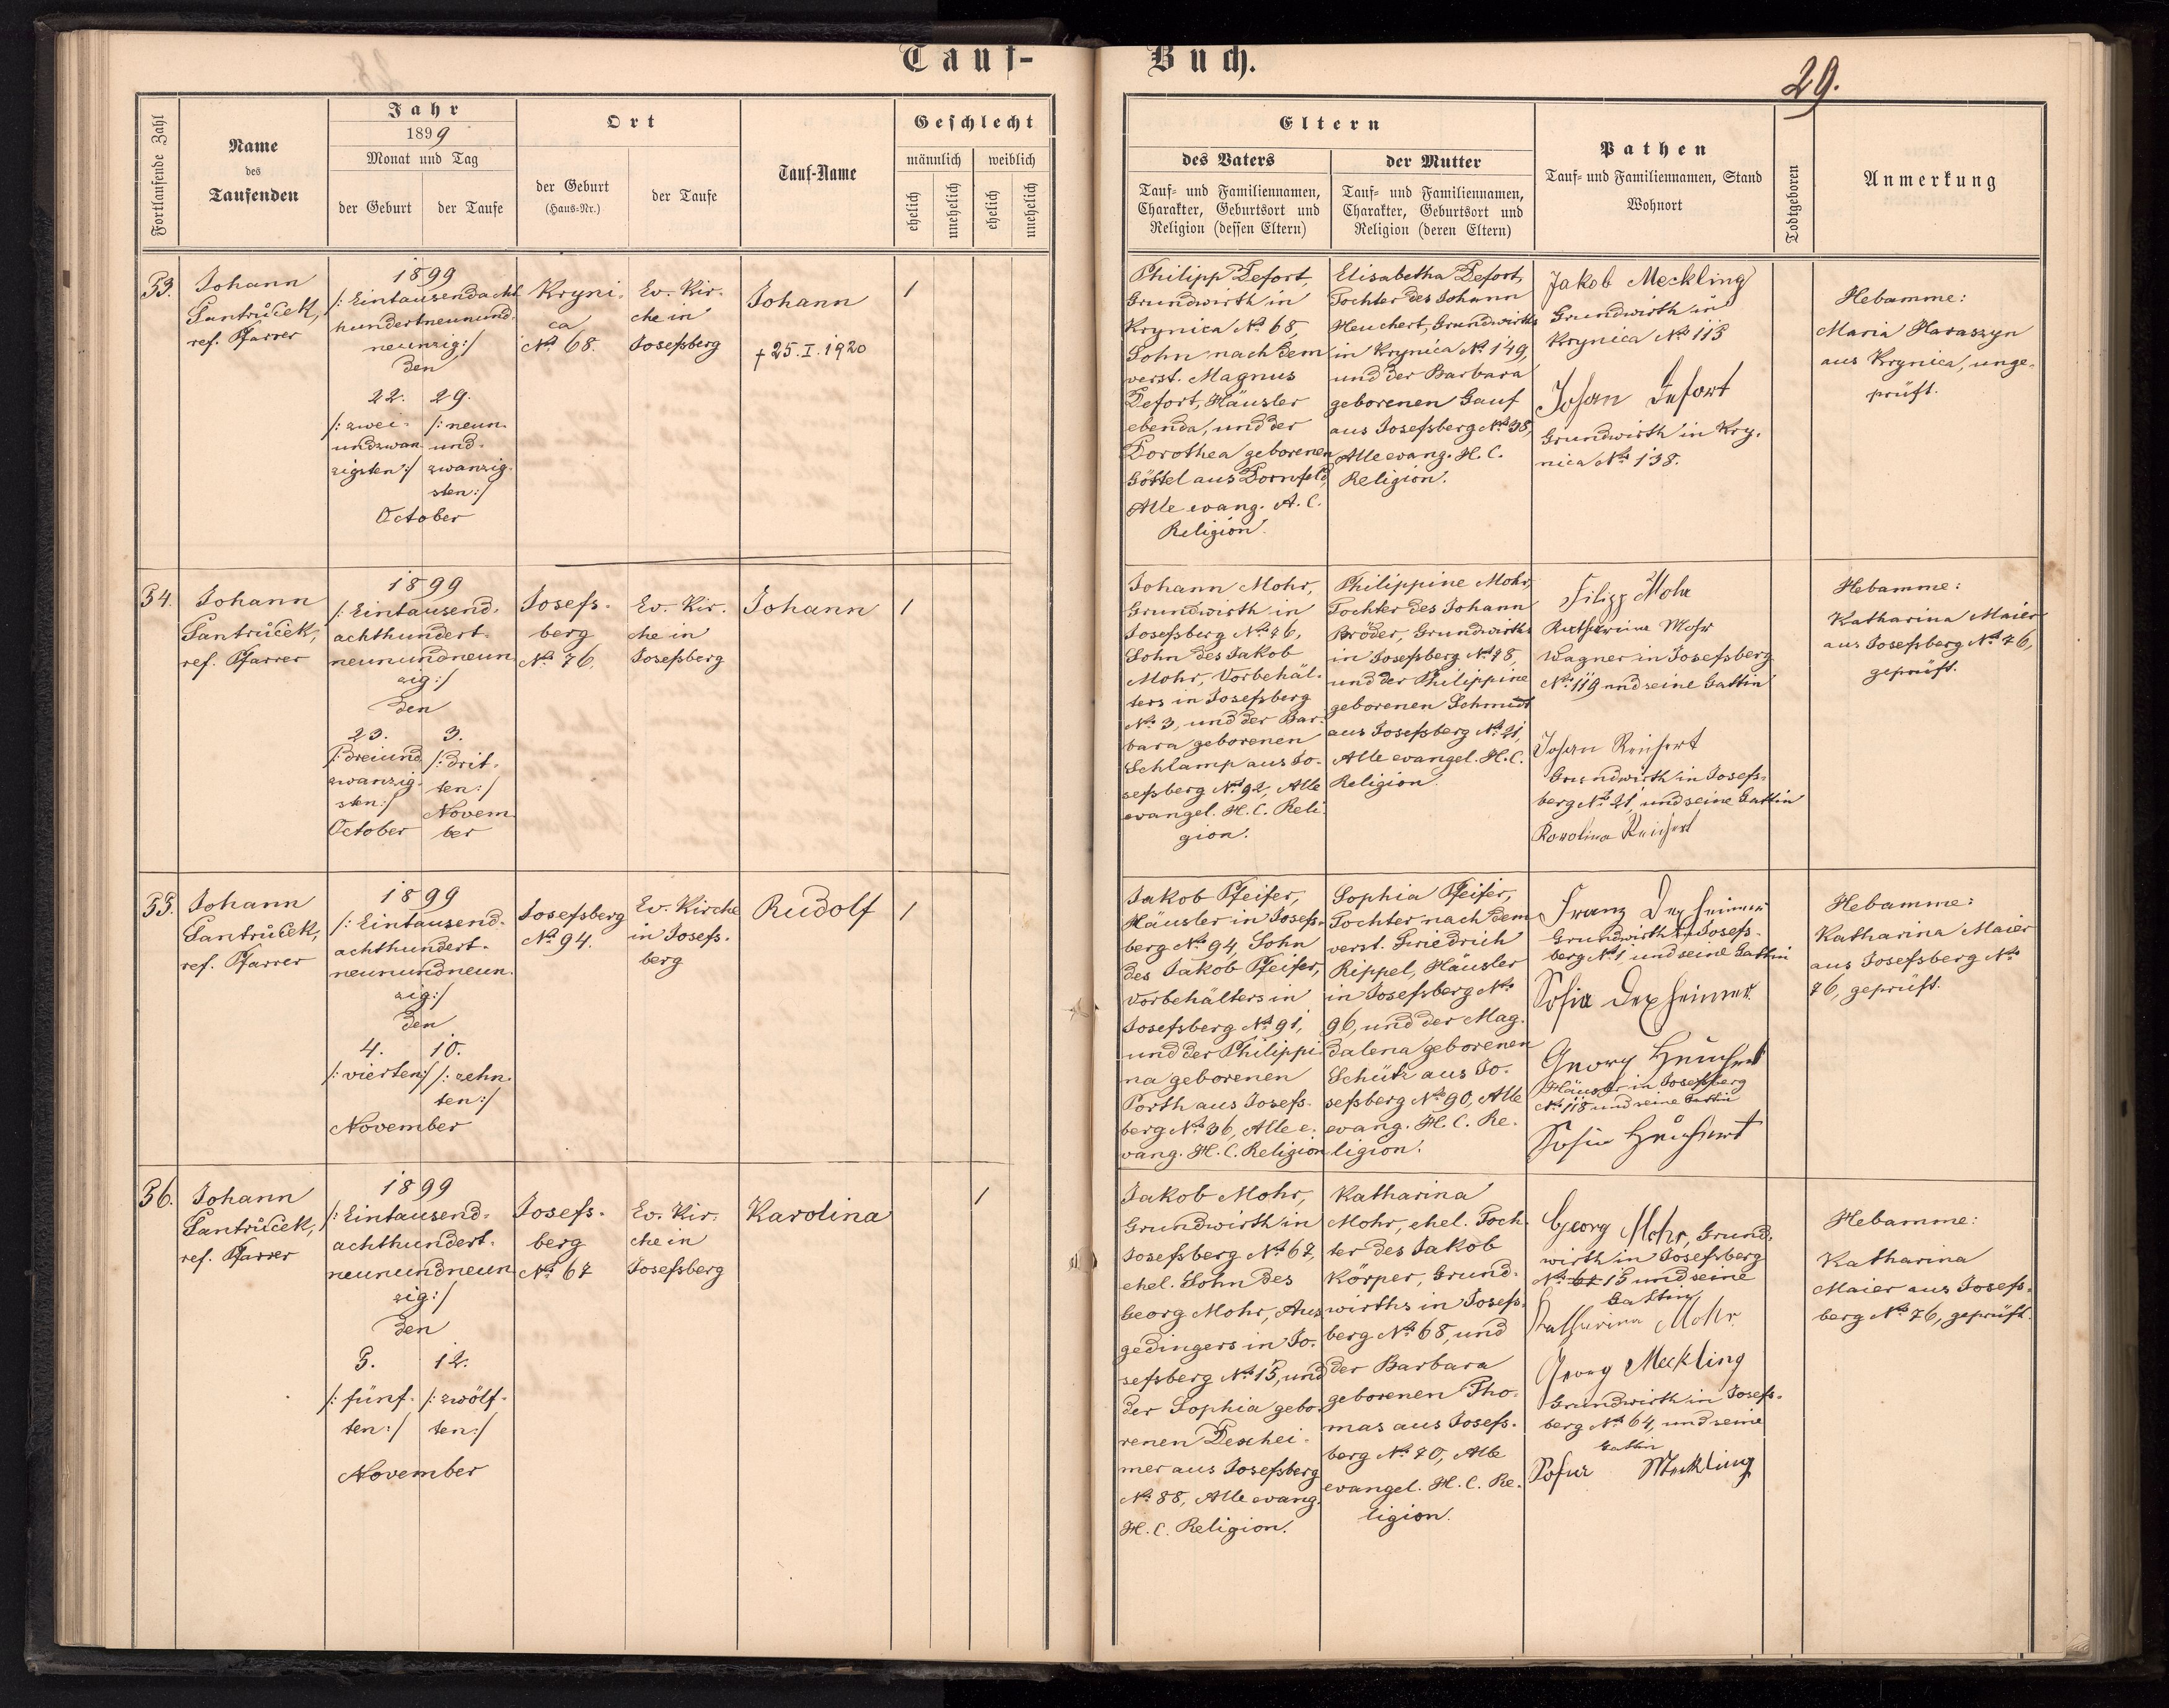 Tauf-
Buch.
29.
Fortlaufende Zahl
Name
des
Taufenden
Jahr
1899
Monat und Tag
der Geburt
der Taufe
Ort
der Geburt
(Haus-Nr.)
der Taufe
Tauf-Name
Geschlecht
männlich
weiblich
ehelich
unehelich
ehelich
unehelich
Eltern
des Vaters
Tauf- und Familiennamen,
Charakter, Geburtsort und
Religion (dessen Eltern)
der Mutter
Tauf- und Familiennamen,
Charakter, Geburtsort und
Religion (deren Eltern)
Pathen
Tauf- und Familiennamen, Stand
Wohnort
Todtgeboren
Anmerkung
53.
Johann
Santrůček,
ref. Pfarrer
1899
/: Eintausendacht
hundertneunund-
neunzig :/
den
22.
/: zwei-
undzwan-
zigsten :/
29.
/: neun-
und-
zwanzig-
sten :/
October
Kryni-
ca
No. 68.
Ev. Kir-
che in
Josefsberg
Johann
+ 25. I. 1920
1
Philipp Defort,
Grundwirth in
Krynica No. 68,
Sohn nach dem
verst. Magnus
Defort, Häusler
ebenda, und der
Dorothea geborenen
Göttel aus Dornfeld,
Alle evang. A. C.
Religion.
Elisabetha Defort,
Tochter des Johann
Heuchert, Grundwirths
in Krynica No. 149,
und der Barbara
geborenen Gauf
aus Josefsberg No. 38,
Alle evang. H. C.
Religion.
Jakob Meckling
Grundwirth in
Krynica No. 113
Johan Defort
Grundwirth in Kry-
nica No. 138.
Hebamme:
Maria Haraszyn
aus Krynica, unge-
prüft.
54.
Johann
Santrůček,
ref. Pfarrer
1899
/: Eintausend-
achthundert-
neunundneun-
zig :/
den
23.
/: dreiund
zwanzig-
sten :/
October
3.
/: drit-
ten :/
Novem-
ber
Josefs-
berg
No. 76.
Ev. Kir-
che in
Josefsberg
Johann
1
Johann Mohr,
Grundwirth in
Josefsberg No. 76,
Sohn des Jakob
Mohr, Vorbehäl-
ters in Josefsberg
No. 3, und der Bar-
bara geborenen
Schlamp aus Jo-
sefsberg No. 92, Alle
evangel. H. C. Reli-
gion.
Philippine Mohr,
Tochter des Johann
Bröder, Grundwirths
in Josefsberg No. 78,
und der Philippine
geborenen Schmidt
aus Josefsberg No. 21,
Alle evangel. H. C.
Religion.
Filipp Mohr
Katharina Mohr
Wagner in Josefsberg
No. 119 und seine Gattin
Johan Reichert
Grundwirth in Josefs-
berg No. 21, und seine Gattin
Karolina Reichert
Hebamme:
Katharina Maier
aus Josefsberg No. 76,
geprüft.
55.
Johann
Santrůček,
ref. Pfarrer
1899
/: Eintausend-
achthundert-
neunundneun-
zig :/
den
4.
/: vierten :/
10.
/: zehn-
ten :/
November
Josefsberg
No. 94.
Ev. Kirche
in Josefs-
berg
Rudolf
1
Jakob Pfeifer,
Häusler in Josefs-
berg No. 94, Sohn
des Jakob Pfeifer,
Vorbehälters in
Josefsberg No. 91,
und der Philippi-
na geborenen
Porth aus Josefs-
berg No. 36, Alle e-
vang. H. C. Religion
Sophia Pfeifer,
Tochter nach dem
verst. Friedrich
Rippel, Häusler
in Josefsberg No.
96, und der Mag-
dalena geborenen
Schütz aus Jo-
sefsberg No. 90, Alle
evang. H. C. Re-
ligion.
Franz Dexheimer
Grundwirth in Josefs-
berg No. 1, und seine Gattin
Sofia Dexheimer
Georg Heuchert
Häusler in Josefsberg
No. 118 und seine Gattin
Sofia Heuchert
Hebamme:
Katharina Maier
aus Josefsberg No.
76, geprüft.
56.
Johann
Santrůček,
ref. Pfarrer
1899
/: Eintausend-
achthundert-
neunundneun-
zig :/
den
5.
/: fünf-
ten :/
12.
/: zwölf-
ten :/
November
Josefs-
berg
No. 67
Ev. Kir-
che in
Josefsberg
Karolina
1
Jakob Mohr,
Grundwirth in
Josefsberg No. 67,
ehel. Sohn des
Georg Mohr, Aus-
gedingers in Jo-
sefsberg No. 15, und
der Sophia gebo-
renen Dexhei-
mer aus Josefsberg
No. 88, Alle evang.
H. C. Religion.
Katharina
Mohr, ehel. Toch-
ter des Jakob
Körper, Grund-
wirths in Josefs-
berg No. 68, und
der Barbara
geborenen Tho-
mas aus Josefs-
berg No. 70, Alle
evangel. H. C. Re-
ligion.
Georg Mohr, Grund-
wirth in Josefsberg
No. 67 15 und seine
Gattin
Katharina Mohr
Georg Meckling
Grundwirth in Josefs-
berg No. 64, und seine
Gattin
Sofia Meckling
Hebamme:
Katharina
Maier aus Josefs-
berg No. 76, geprüft.